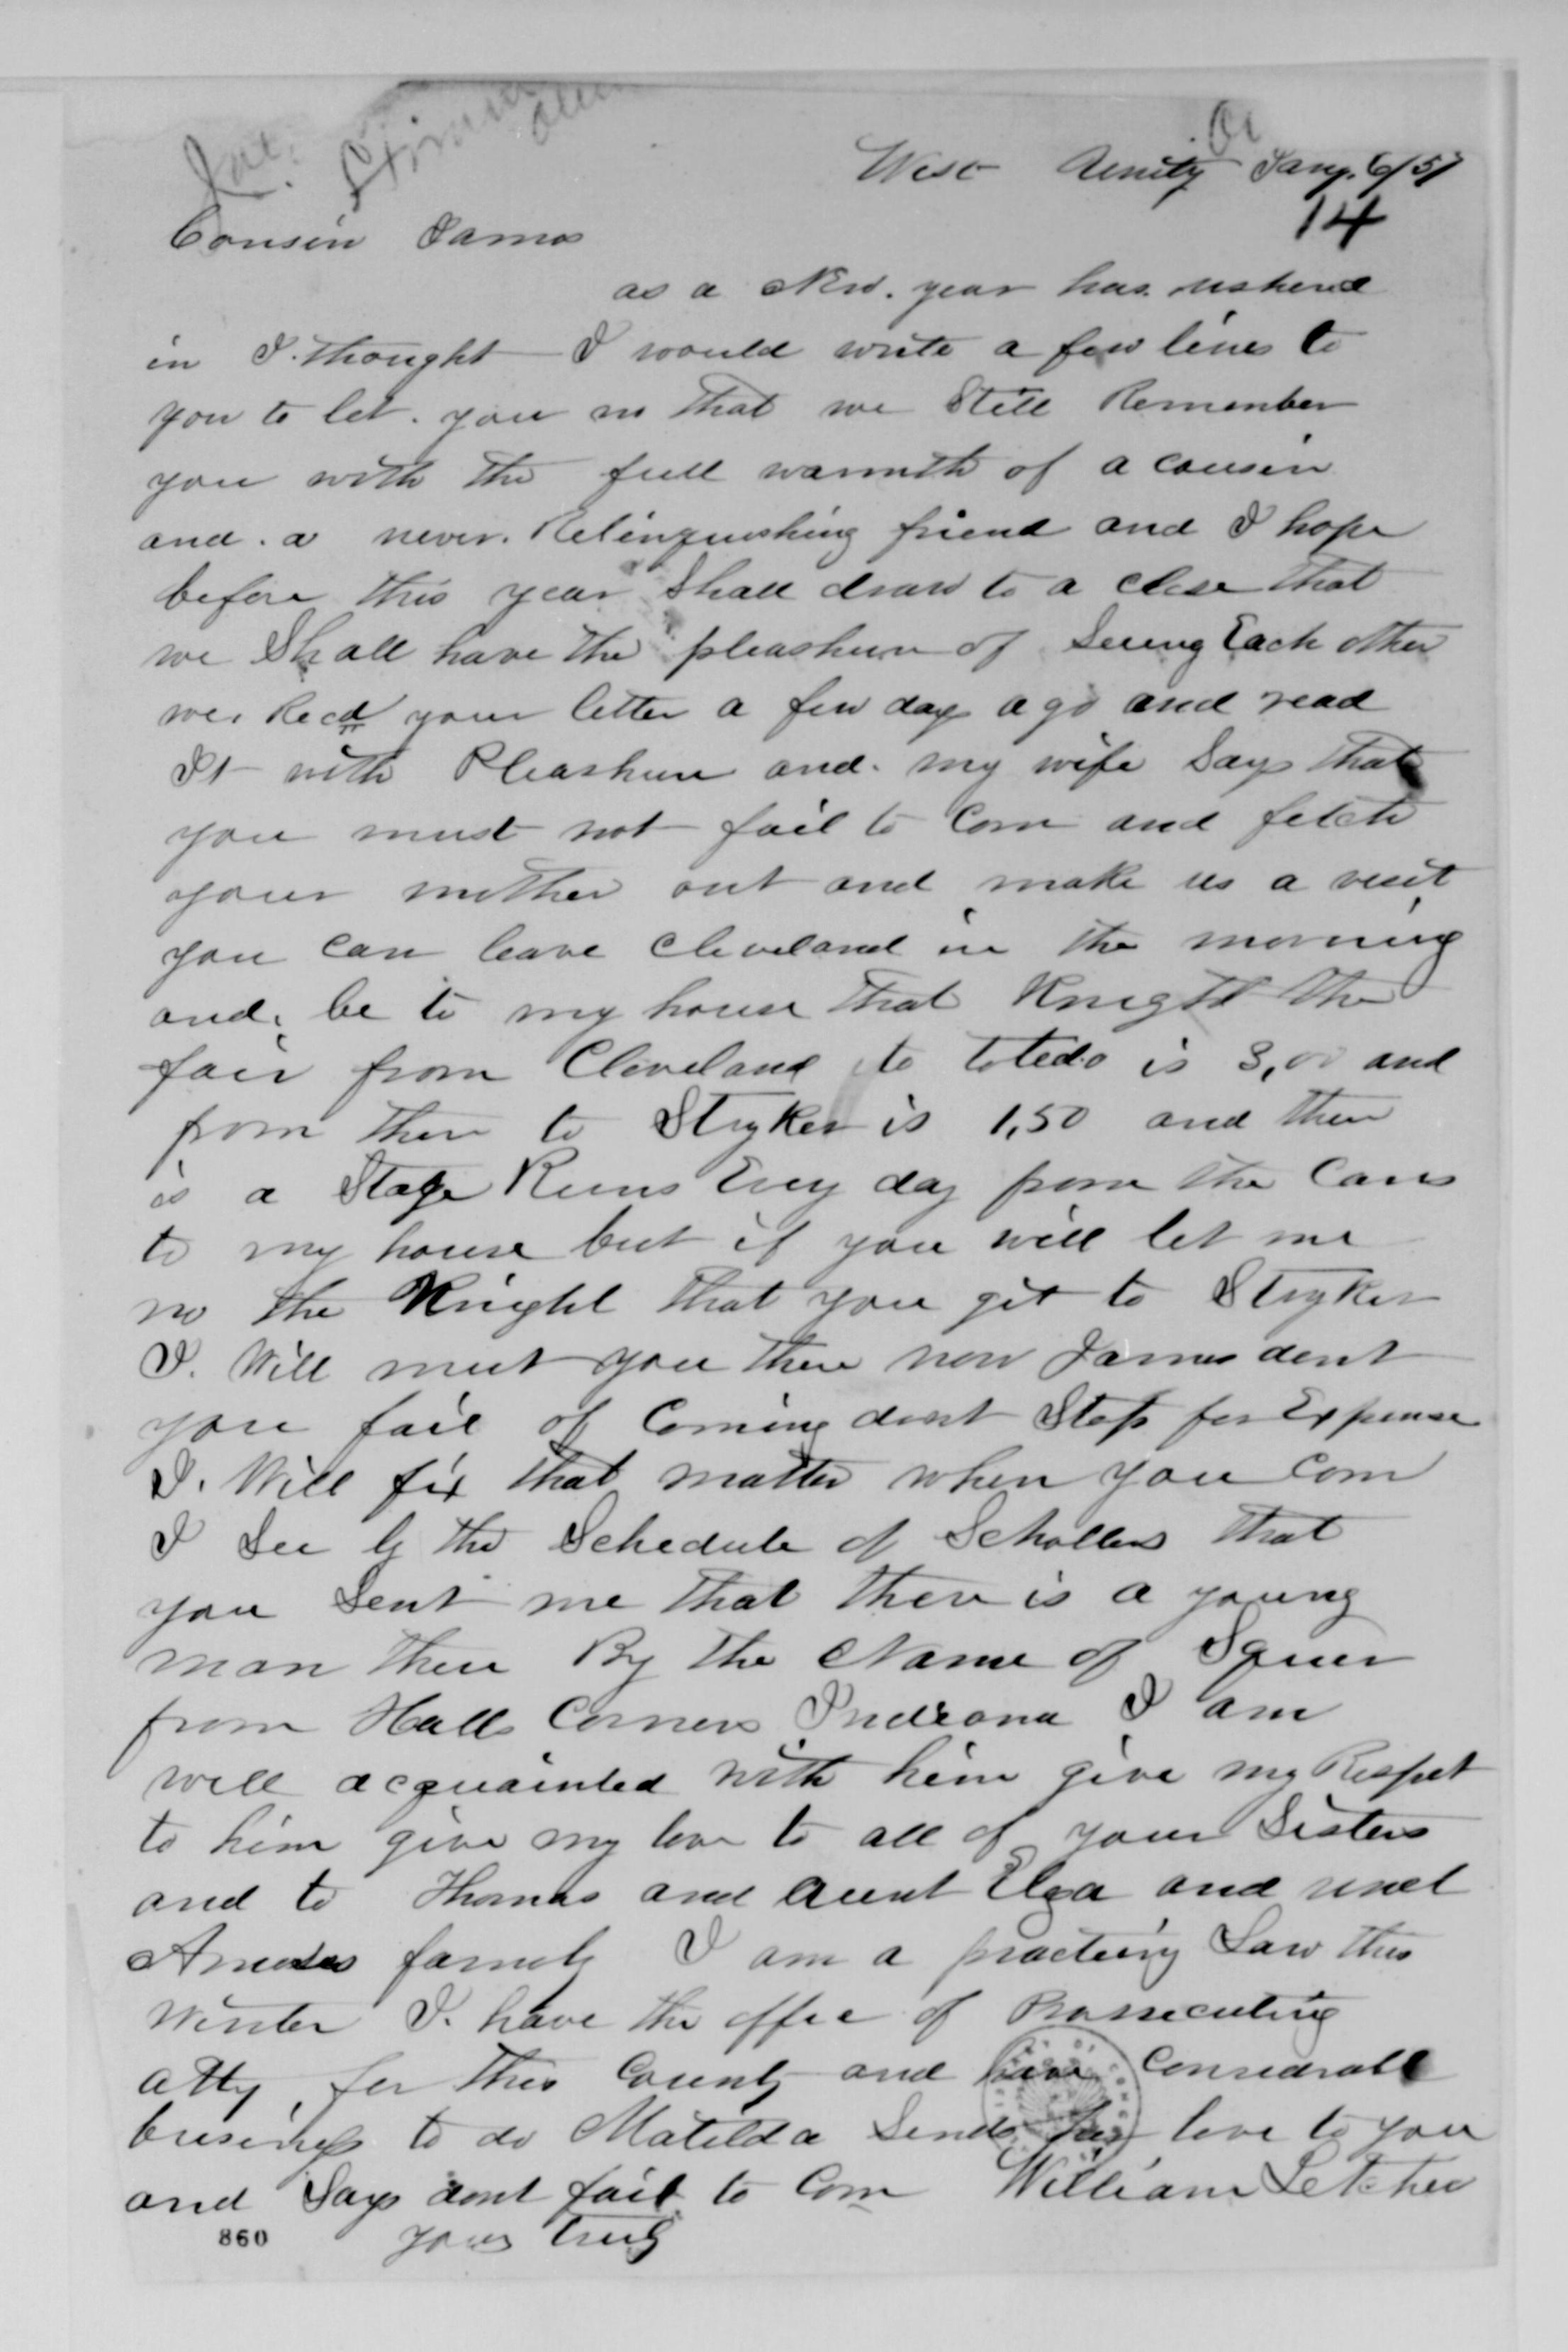 West Unity Jany. 6/57
14
Cousin James
as a New. year has ushered
in I. thought I would write a few lines to
you to let. you no that we Still Remember
you with the full warmth of a cousin
and. a never. Relinquishing friend and I hope
before this year Shall draw to a close that
we Shall have the pleashure of Seeing Each other
we. Recd your letter a few days ago and read
It with Pleashure and. my wife Says that
you must not fail to Com and fetch
your mother out and make us a visit
you can leave Cleveland in the morning
and. be to my house that Knight the
fair from Cleveland to toledo is 3,00 and
from there to Stryker is 1,50 and there
is a Stage Runs Evry day from the Cars
to my house but if you will let me
no the Knight that you git to Stryker
I. Will meet you there now James dont
you fail of Coming dont Stop for Expense
I. Will fix that matter when you Com
I See by the Schedule of Schollers that
you Sent me that there is a young
man there By the Name of Squier
from Halls Corners Indiana I am
well acquainted with him give my Respet
to him give my love to all of your Sisters
and to Thomas and aunt Elza and uncl
Amos family I am a practicing Law this
Winter I. have the offce of Prossecuting
atty, for this County and have Considrabl
business to do Matilda Sends her love to you
and Says dont fail to Com William Letcher
860 yours truly